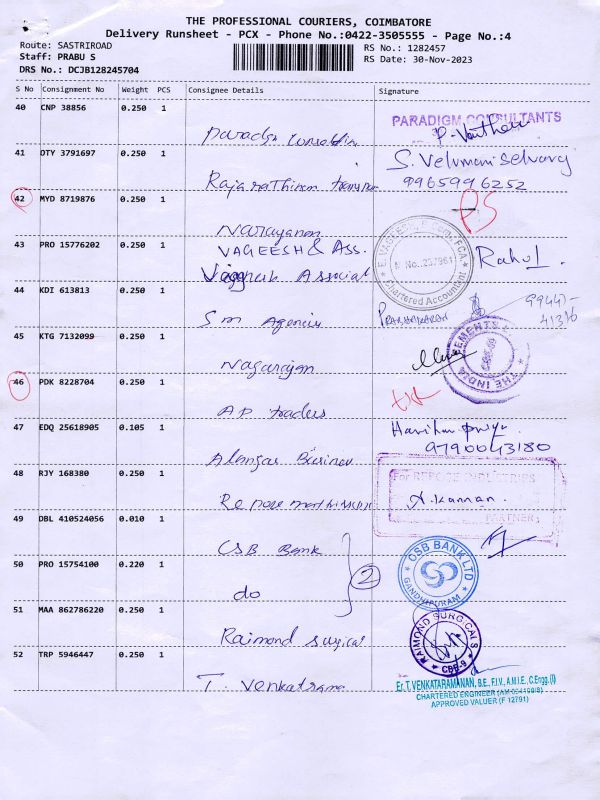 THE PROFESSIONAL COURIERS, COIMBATORE
Delivery Runsheet - PCX - Phone No.:0422-3505555 - Page No.:4
Route: SASTRIROAD
RS No.: 1282457
Staff: PRABU S
RS Date: 30-Nov-2023
DRS No.: DCJB128245704
S No Consignment No Weight PCS Consignee Details Signature
40 CNP 38856 0.250 1
PARADIGM CONSULTANTS
41 DTY 3791697 0.250 1
S. Velumani Selvary
9965996252
42 MYD 8719876 0.250 1
PS
Narayanan
43 PRO 15776202 0.250 1
VAGEESH & ASS.
Associat
M No. 257961
Chartered Accountant
Rahul.
44 KDI 613813 0.250 1
Sm Agencies
PRABHAKARAN
99447-
41376
45 KTG 7132099 0.250 1
Nagarajan
46 PDK 8228704 0.250 1
AP traders
47 EDQ 25618905 0.105 1
9790043180
48 RJY 168380 0.250 1
For REPOSE INDUSTRIES
A. Kannan.
PARTNER
49 DBL 410524056 0.010 1
CSB Bank
50 PRO 15754100 0.220 1
do
2
CSB BANK LTD
GANDHIPURAM
51 MAA 862786220 0.250 1
Raimond surgical
RAIMOND SURGICALS
CBE-9
52 TRP 5946447 0.250 1
T. Venkatrama
Er.T.VENKATARAMANAN, B.E., F.I.V., A.M.I.E., C.Engg.(I)
CHARTERED ENGINEER
APPROVED VALUER (F 12791)